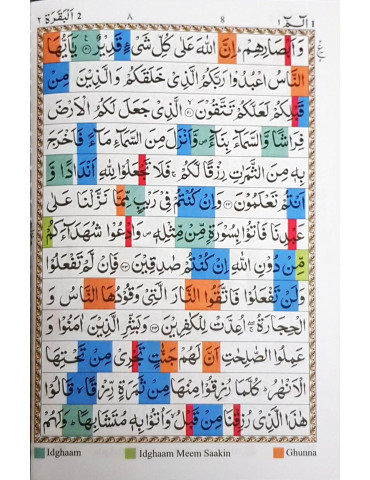 2 اَلْبَقَرَة ٢ ٨ 8 الٓمّٓ ١ 1
وَاَبْصَارِهِمْ ؕ اِنَّ اللّٰهَ عَلٰى كُلِّ شَىْءٍ قَدِيْرٌ ۟ يٰۤاَيُّهَا
النَّاسُ اعْبُدُوْا رَبَّكُمُ الَّذِىْ خَلَقَكُمْ وَالَّذِيْنَ مِنْ
قَبْلِكُمْ لَعَلَّكُمْ تَتَّقُوْنَ ۟ الَّذِىْ جَعَلَ لَكُمُ الْاَرْضَ
فِرَاشًا وَّالسَّمَآءَ بِنَآءً ۪ وَّاَنْزَلَ مِنَ السَّمَآءِ مَآءً فَاَخْرَجَ
بِهٖ مِنَ الثَّمَرٰتِ رِزْقًا لَّكُمْ ۚ فَلَا تَجْعَلُوْا لِلّٰهِ اَنْدَادًا وَّ
اَنْتُمْ تَعْلَمُوْنَ ۟ وَاِنْ كُنْتُمْ فِىْ رَيْبٍ مِّمَّا نَزَّلْنَا عَلٰى
عَبْدِنَا فَاْتُوْا بِسُوْرَةٍ مِّنْ مِّثْلِهٖ ۪ وَادْعُوْا شُهَدَآءَكُمْ
مِّنْ دُوْنِ اللّٰهِ اِنْ كُنْتُمْ صٰدِقِيْنَ ۟ فَاِنْ لَّمْ تَفْعَلُوْا
وَلَنْ تَفْعَلُوْا فَاتَّقُوا النَّارَ الَّتِىْ وَقُوْدُهَا النَّاسُ وَ
الْحِجَارَةُ ۖۚ اُعِدَّتْ لِلْكٰفِرِيْنَ ۟ وَبَشِّرِ الَّذِيْنَ اٰمَنُوْا وَ
عَمِلُوا الصّٰلِحٰتِ اَنَّ لَهُمْ جَنّٰتٍ تَجْرِىْ مِنْ تَحْتِهَا
الْاَنْهٰرُ ؕ كُلَّمَا رُزِقُوْا مِنْهَا مِنْ ثَمَرَةٍ رِّزْقًا ۙ قَالُوْا
هٰذَا الَّذِىْ رُزِقْنَا مِنْ قَبْلُ ۙ وَاُتُوْا بِهٖ مُتَشَابِهًا ؕ وَلَهُمْ
Idghaam Idghaam Meem Saakin Ghunna